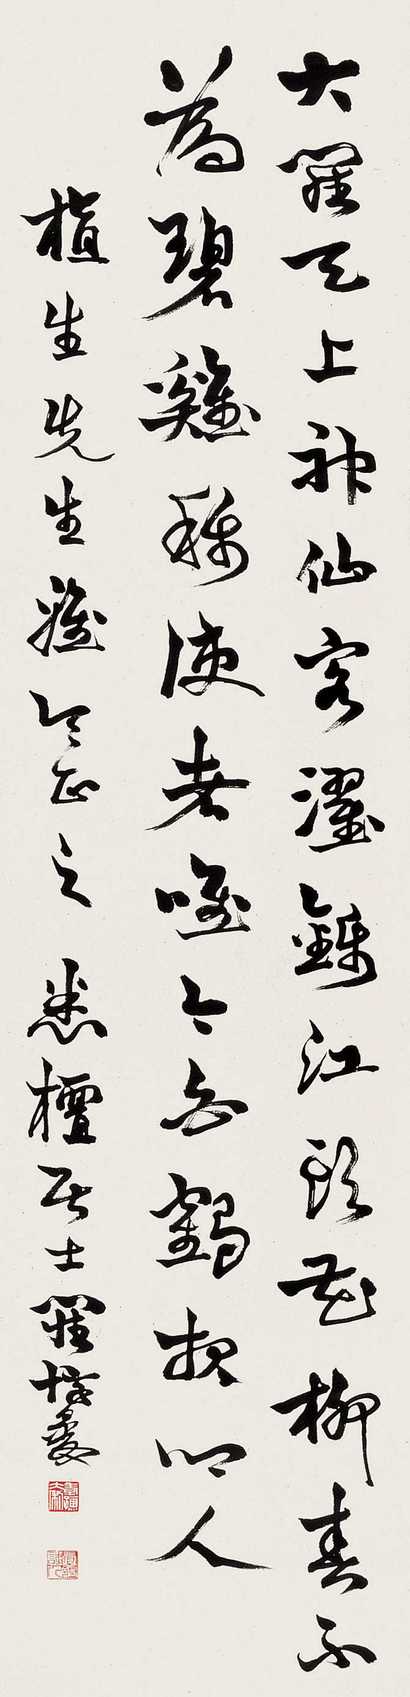 大羅天上神仙客濯錦江頭花柳春不
為碧雞稱使者唯令白鶴報鄉人
植生先生雅命正之 悉檀居士羅惇㬊